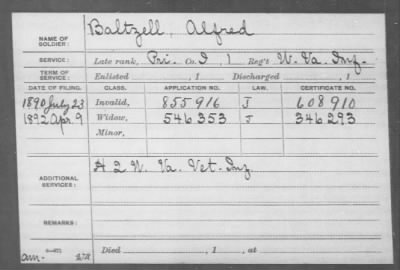 NAME OF SOLDIER: Baltzell, Alfred
SERVICE: Late rank, Pri. Co. I, 1 Reg't W. Va. Inf.
TERM OF SERVICE: Enlisted , 1 Discharged , 1
DATE OF FILING. CLASS. APPLICATION NO. LAW. CERTIFICATE NO.
1890 July 23 Invalid, 855916 J 608910
1892 Apr. 9 Widow, 546353 J 346293
Minor,
ADDITIONAL SERVICES: H 2 W. Va. Vet. Inf.
REMARKS:
Died , 1 , at